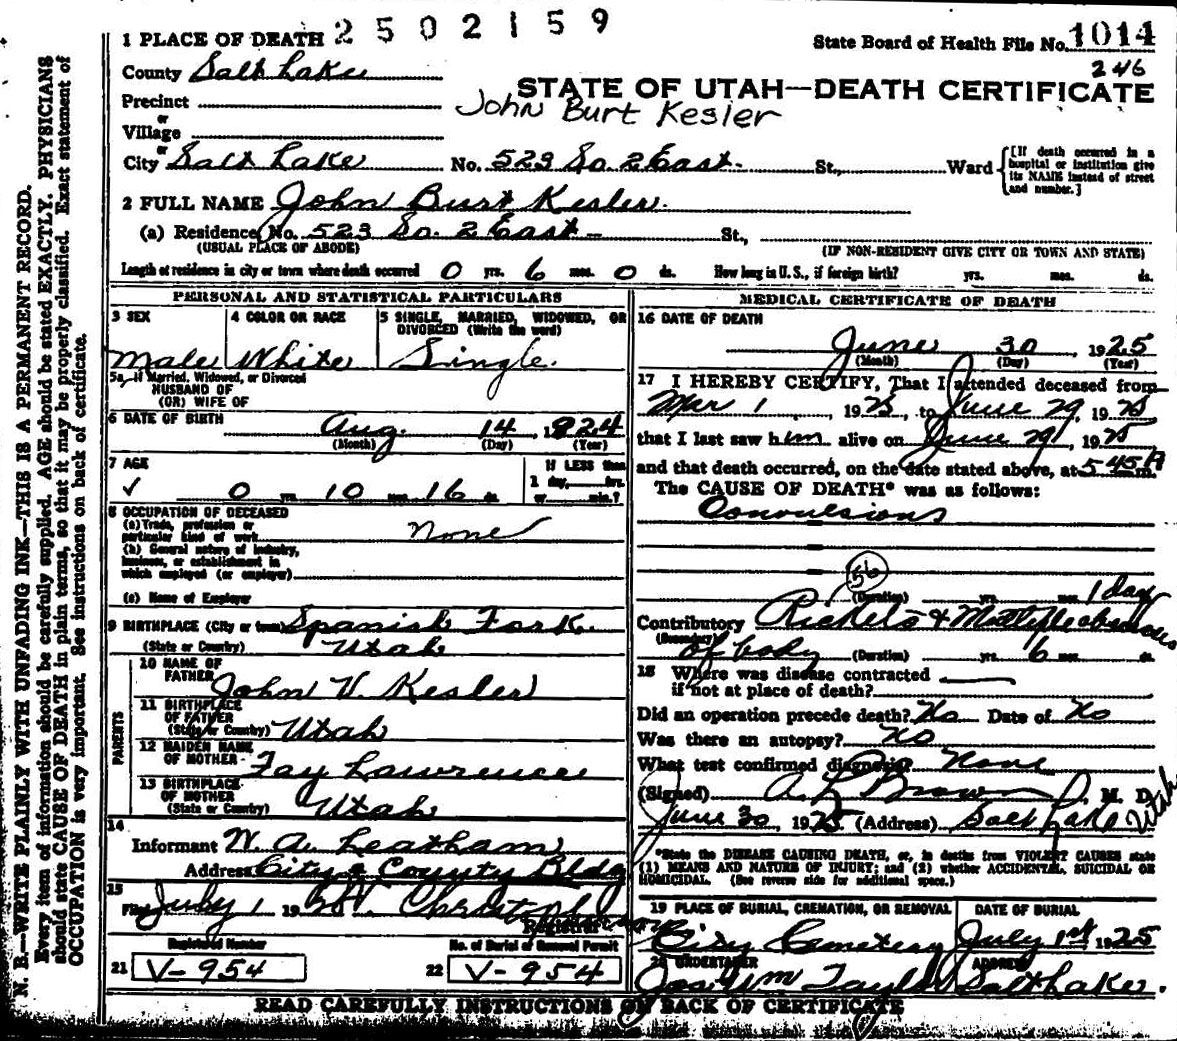 2502159
1 PLACE OF DEATH
State Board of Health File No. 1014
246
County Salt Lake
STATE OF UTAH—DEATH CERTIFICATE
Precinct
John Burt Kesler
or
Village
or
City Salt Lake No. 523 So. 2 East St., Ward
[If death occurred in a
hospital or institution give
its NAME instead of street
and number.]
2 FULL NAME John Burt Kesler
(a) Residence, No. 523 So. 2 East St.,
(USUAL PLACE OF ABODE) (IF NON-RESIDENT GIVE CITY OR TOWN AND STATE)
Length of residence in city or town where death occurred 0 yrs. 6 mos. 0 ds. How long in U. S., if foreign birth? yrs. mos. ds.
PERSONAL AND STATISTICAL PARTICULARS
3 SEX 4 COLOR OR RACE 5 SINGLE, MARRIED, WIDOWED, OR
DIVORCED (Write the word)
Male White Single.
5a If Married, Widowed, or Divorced
HUSBAND OF
(OR) WIFE OF
6 DATE OF BIRTH Aug. 14, 1924
(Month) (Day) (Year)
7 AGE If LESS than
1 day, hrs.
✓ 0 yrs. 10 mos. 16 ds. or min.?
8 OCCUPATION OF DECEASED
(a) Trade, profession or
particular kind of work None
(b) General nature of industry,
business, or establishment in
which employed (or employer)
(c) Name of Employer
9 BIRTHPLACE (City or town) Spanish Fork.
(State or Country) Utah
PARENTS
10 NAME OF
FATHER John V. Kesler
11 BIRTHPLACE
OF FATHER
(State or Country) Utah
12 MAIDEN NAME
OF MOTHER Fay Lawrence
13 BIRTHPLACE
OF MOTHER
(State or Country) Utah
14
Informant W. A. Leatham
Address City & County Bldg
15
July 1 19
Registrar
Registered Number No. of Burial or Removal Permit
21 V-954 22 V-954
MEDICAL CERTIFICATE OF DEATH
16 DATE OF DEATH
June 30, 1925
(Month) (Day) (Year)
17 I HEREBY CERTIFY, That I attended deceased from
Mar 1, 1925, to June 29, 1925
that I last saw him alive on June 29, 1925
and that death occurred, on the date stated above, at 5 45 A m.
The CAUSE OF DEATH* was as follows:
Convulsions
56
(Duration) yrs. mos. 1 day
Contributory Rickets & Multiple abscesses
(Secondary) of body (Duration) yrs. 6 mos. ds.
18 Where was disease contracted
if not at place of death?
Did an operation precede death? No Date of No
Was there an autopsy? No
What test confirmed diagnosis? None
(Signed) A. L. Brown, M. D.
June 30, 1925 (Address) Salt Lake Utah
*State the DISEASE CAUSING DEATH, or, in deaths from VIOLENT CAUSES state
(1) MEANS AND NATURE OF INJURY; and (2) whether ACCIDENTAL, SUICIDAL OR
HOMICIDAL. (See reverse side for additional space.)
19 PLACE OF BURIAL, CREMATION, OR REMOVAL DATE OF BURIAL
City Cemetery July 1st 1925
20 UNDERTAKER ADDRESS
Jos Wm Taylor Salt Lake.
READ CAREFULLY INSTRUCTIONS ON BACK OF CERTIFICATE
N. B.—WRITE PLAINLY WITH UNFADING INK—THIS IS A PERMANENT RECORD.
Every item of information should be carefully supplied. AGE should be stated EXACTLY. PHYSICIANS
should state CAUSE OF DEATH in plain terms, so that it may be properly classified. Exact statement of
OCCUPATION is very important. See instructions on back of certificate.